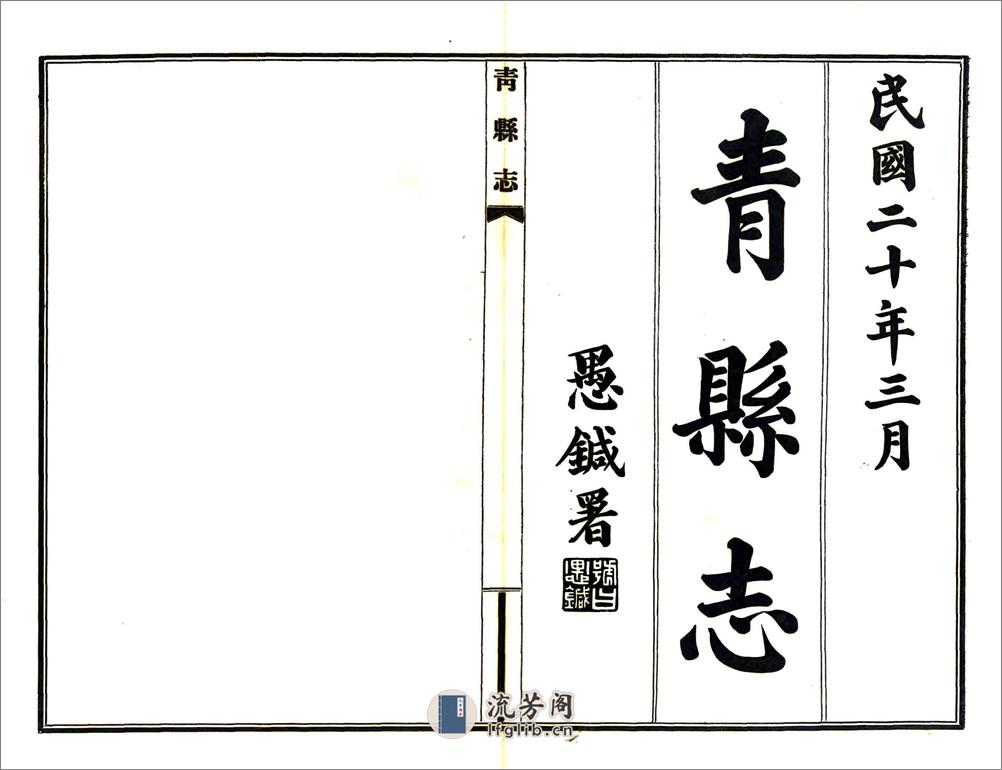 民國二十年三月
青縣志
愚鍼署
號曰愚鍼
青縣志
流芳阁
lfglib.cn